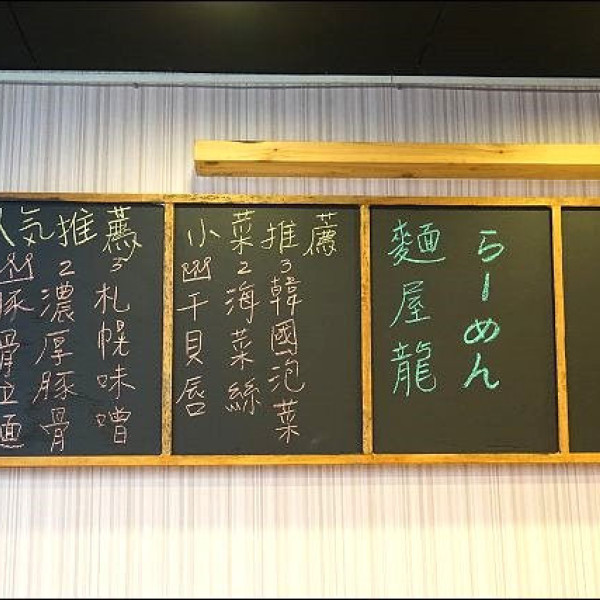 人気推薦
豚骨拉麵
2濃厚豚骨
3札幌味噌
小菜推薦
干貝唇
2海菜絲
3韓國泡菜
麵屋龍
らーめん